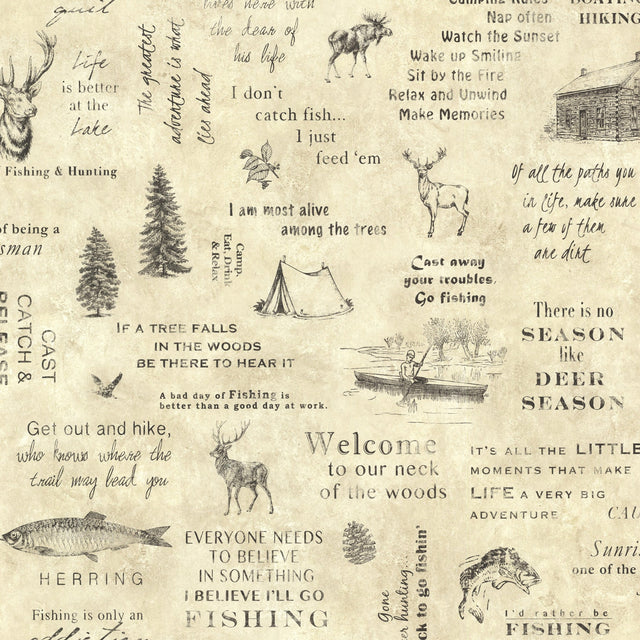 guil
lives here with
the dear of
his life
Camping Rules
Nap often
Watch the Sunset
Wake up Smiling
Sit by the Fire
Relax and Unwind
Make Memories
BOATING
HIKING
Life
is better
at the
Lake
The greatest
adventure is what
lies ahead
I don't
catch fish...
I just
feed 'em
Fishing & Hunting
Of all the paths you
in life, make sure
a few of them
are dirt
of being a
sman
I am most alive
among the trees
Camp,
Eat, Drink
& Relax
Cast away
your troubles,
Go fishing
CAST
CATCH &
RELEASE
IF A TREE FALLS
IN THE WOODS
BE THERE TO HEAR IT
There is no
SEASON
like
DEER
SEASON
A bad day of Fishing is
better than a good day at work.
Get out and hike,
who knows where the
trail may lead you
Welcome
to our neck
of the woods
IT'S ALL THE LITTLE
MOMENTS THAT MAKE
LIFE A VERY BIG
ADVENTURE
CAU
HERRING
EVERYONE NEEDS
TO BELIEVE
IN SOMETHING
I BELIEVE I'LL GO
FISHING
Gone
er hunting.
ck to go fishin'
Sunri
one of the
Fishing is only an
addiction
I'd rather be
FISHING